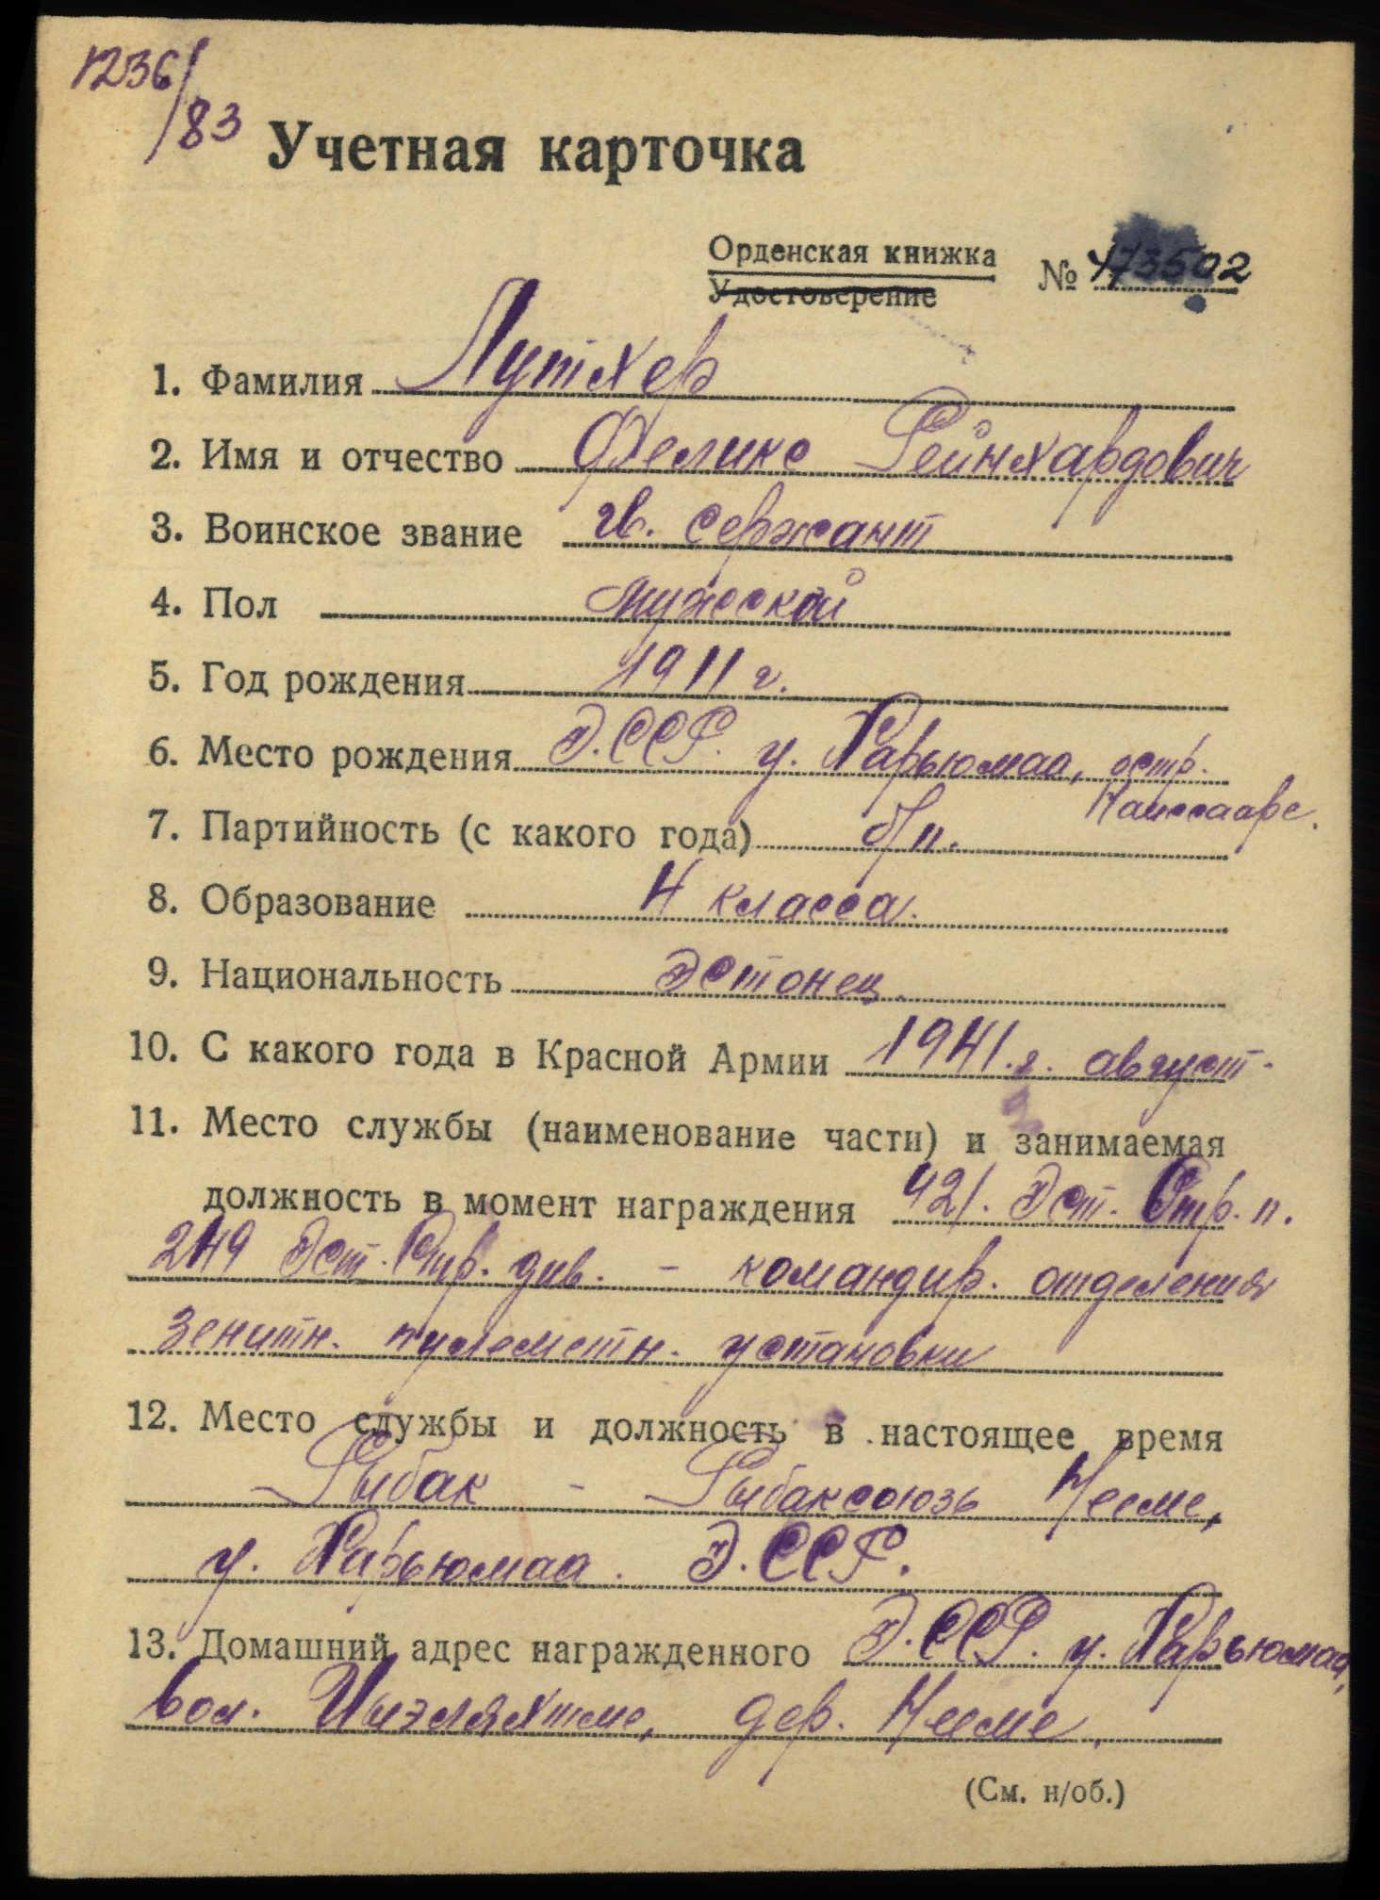 1236/83
Учетная карточка
Орденская книжка № 473502
Удостоверение
1. Фамилия Лутхер
2. Имя и отчество Феликс Рейнхардович
3. Воинское звание гв. сержант
4. Пол мужской
5. Год рождения 1911 г.
6. Место рождения Э.ССР. у. Харьюмаа, остр.
Наиссааре.
7. Партийность (с какого года) б/п.
8. Образование 4 класса.
9. Национальность Эстонец.
10. С какого года в Красной Армии 1941.г. август.
11. Место службы (наименование части) и занимаемая
должность в момент награждения 921. Эст. Стр. п.
249 Эст. Стр. див. - командир. отделения
зенитн. пулеметн. установки
12. Место службы и должность в настоящее время
- Рыбак - Рыбаксоюзь Неэме,
у. Харьюмаа. Э.ССР.
13. Домашний адрес награжденного Э.ССР. у. Харьюмаа,
вол. Иыэляхтме, дер. Неэме.
(См. н/об.)